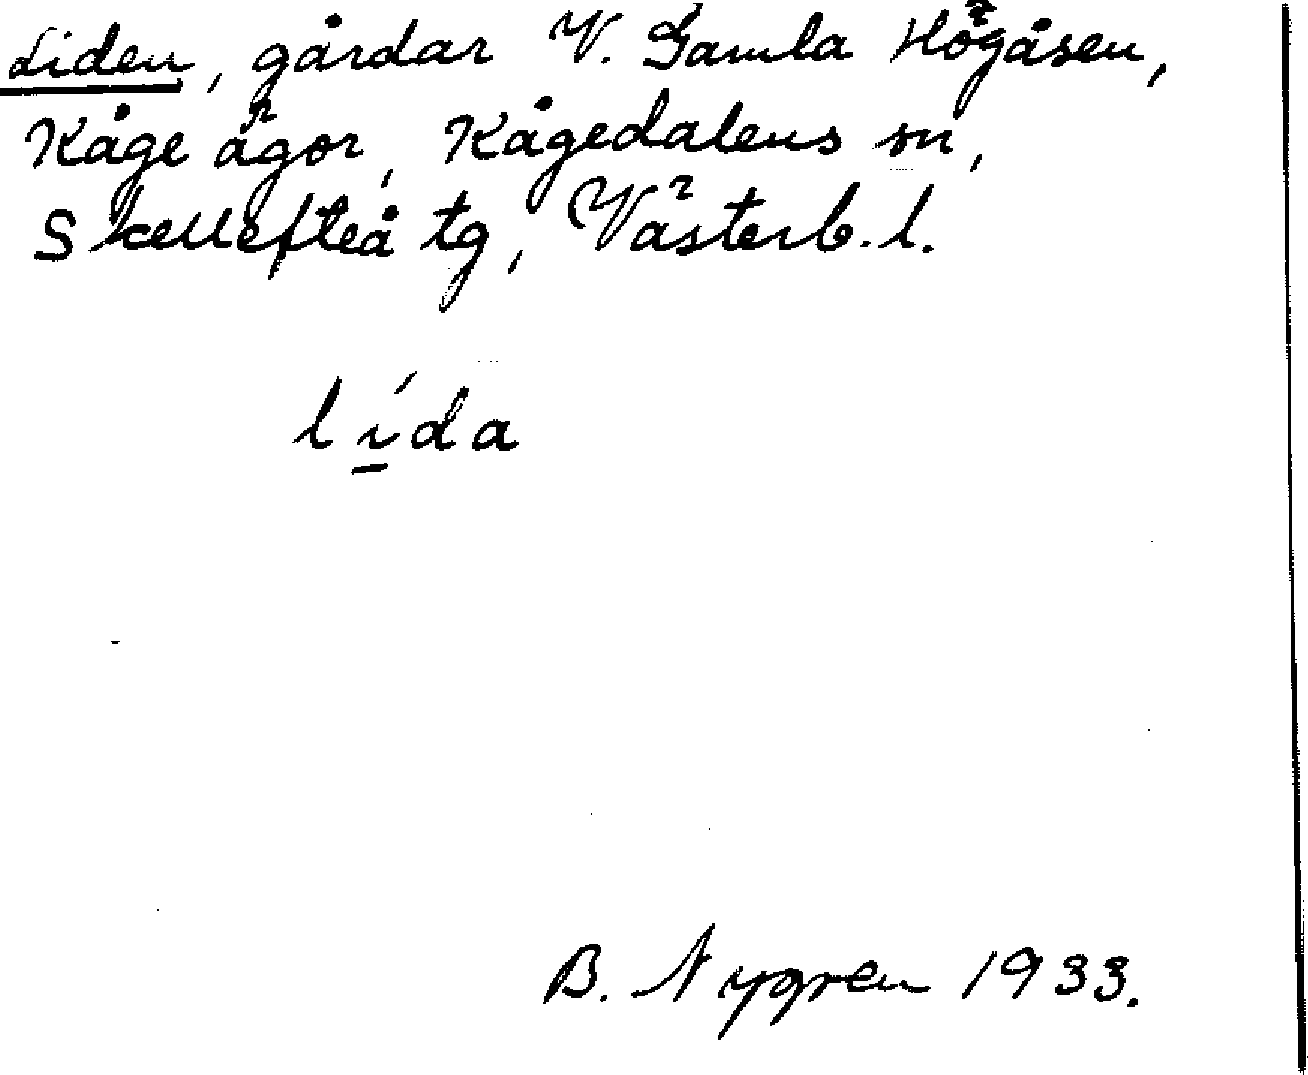 Liden, gårdar V. Gamla Högåsen,
Kåge ägor, Kågedalens sn,
Skellefteå tg, Västerb. l.
lí̱da
B. Nygren 1933.